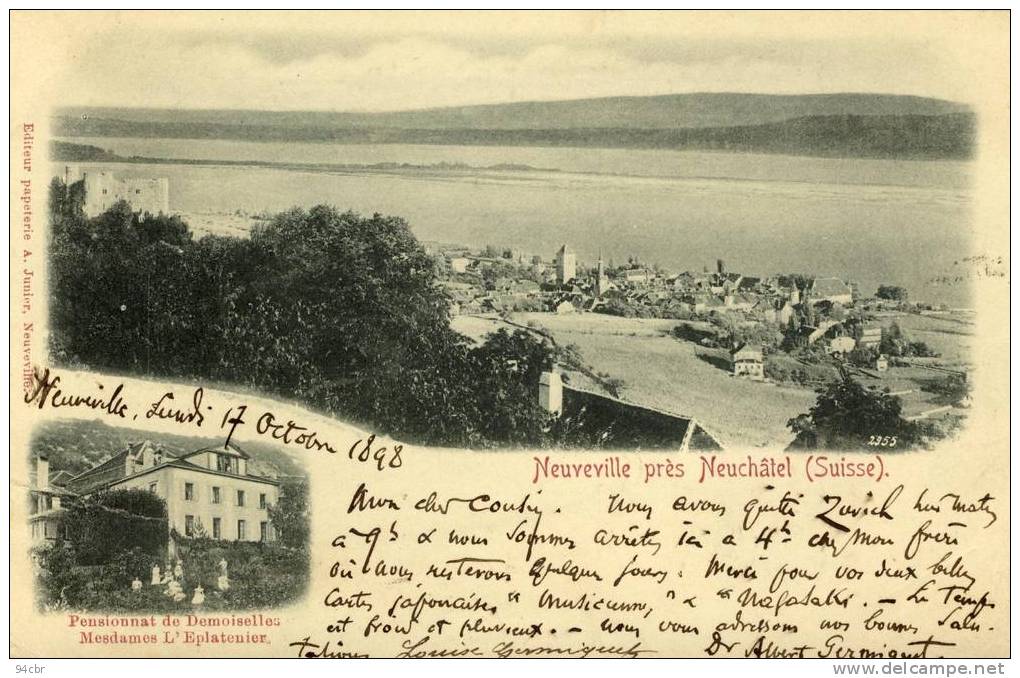 Editeur papeterie A. Junier, Neuveville.
2355
Neuveville, Lundi 17 Octobre 1898
Neuveville près Neuchâtel (Suisse).
Mon cher Cousin. Nous avons quitté Zurich hier matin
à 9h & nous sommes arrêtés ici à 4h chez mon frère
où nous resterons quelques jours. Merci pour vos deux belles
Cartes japonaises "Musicum," & "Nagasaki. - Le Temps
est froid et pluvieux. - Nous vous adressons nos bonnes Salu-
tations Louise Germiquet Dr Albert Germiquet
Pensionnat de Demoiselles
Mesdames L'Eplatenier.
94cbr
http://www.delcampe.net